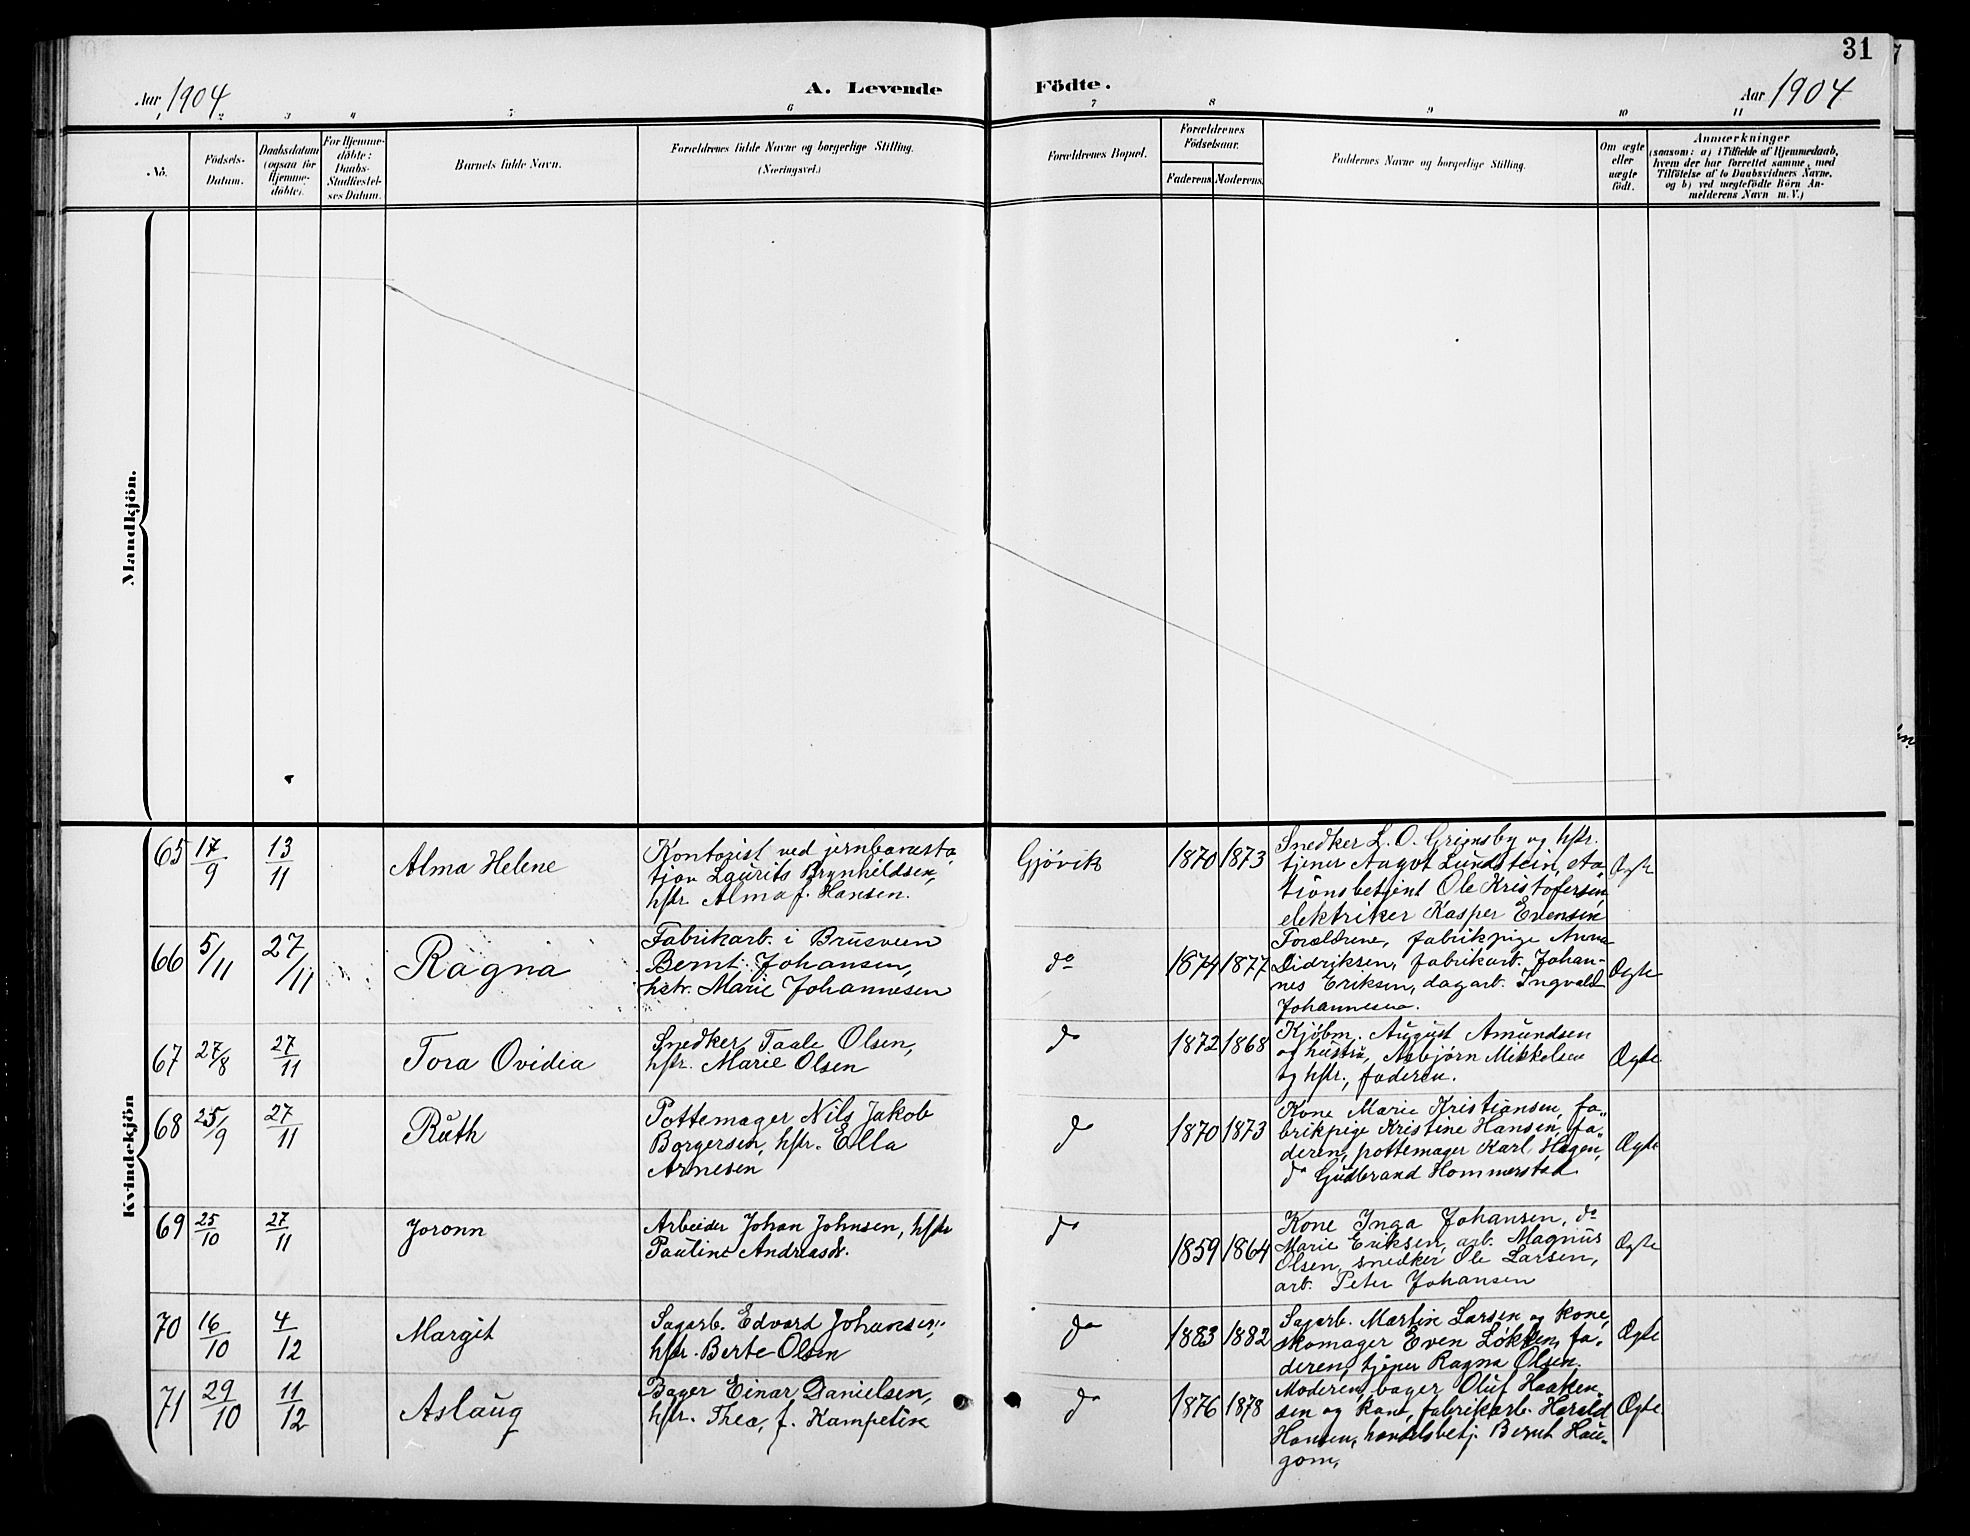 31
Aar 1904
A. Levende Födte.
Aar 1904
1 2 3 4 5 6 7 8 9 10 11
No.
Födsels-
Datum.
Daabsdatum
(ogsaa for
Hjemme-
döbte).
For Hjemme-
döbte:
Daabs-
Stadfæstel-
ses Datum.
Barnets fulde Navn.
Forældrenes fulde Navne og borgerlige Stilling.
(Næringsvei.)
Forældrenes Bopæl.
Forældrenes
Födselsaar.
Faderens. Moderens.
Faddernes Navne og borgerlige Stilling.
Om ægte
eller
uægte
födt.
Anmærkninger
(saasom: a) i Tilfælde af Hjemmedaab,
hvem der har forrettet samme, med
Tilföielse af to Daabsvidners Navne,
og b) ved uægtefödte Börn An-
melderens Navn m.V.)
Mandkjön.
Kvindekjön
65 17/9 13/11 Alma Helene
Kontorist ved jernbanesta-
tion Laurits Brynhildsen,
hstr. Alma f. Hansen.
Gjövik 1870 1873
Snedker L. O. Grimsby og hstr.
tjener Aagot Lundstein, sta-
tionsbetjent Ole Kristofersen,
elektriker Kasper Evensen
Ægte
66 5/11 27/11 Ragna
Fabrikarb. i Brusveen
Bernt Johansen,
hstr. Marie Johannesen
do 1874 1877
Forældrene, fabrikpige Anna
Didriksen, fabrikarb. Johan-
nes Eriksen, dagarb. Ingvald
Johannesen.
Ægte
67 27/8 27/11 Tora Ovidia
Snedker Taale Olsen,
hstr. Marie Olsen
do 1872 1868
Kjøbm. August Amundsen
og hustru, Asbjørn Mikkelsen
og hstr., faderen.
Ægte
68 25/9 27/11 Ruth
Pottemager Nils Jakob
Borgersen, hstr. Ella
Arnesen
do 1870 1873
Kone Marie Kristiansen, fa-
brikpige Kristine Hansen, fa-
deren, pottemager Karl Hagen,
do Gudbrand Hommerstad
Ægte
69 25/10 27/11 Joronn
Arbeider Johan Johnsen, hstr
Pauline Andreasdr.
do 1859 1864
Kone Inga Johansen, do
Marie Eriksen, arb. Magnus
Olsen, snedker Ole Larsen,
arb. Peter Johansen
Ægte
70 16/10 4/12 Margit
Sagarb. Edvard Johansen,
hstr. Berte Olsen
do 1883 1882
Sagarb. Martin Larsen og kone,
skomager Even Løkken, fa-
deren, tjener Ragna Olsen.
Ægte
71 29/10 11/12 Aslaug
Bager Einar Danielsen,
hstr. Thea, f. Kampesti
do 1876 1878
Moderen, bager Oluf Haaken-
sen og kone, fabrikarb. Harald
Hansen, handelsbetj. Bernt Hau-
gom,
Ægte